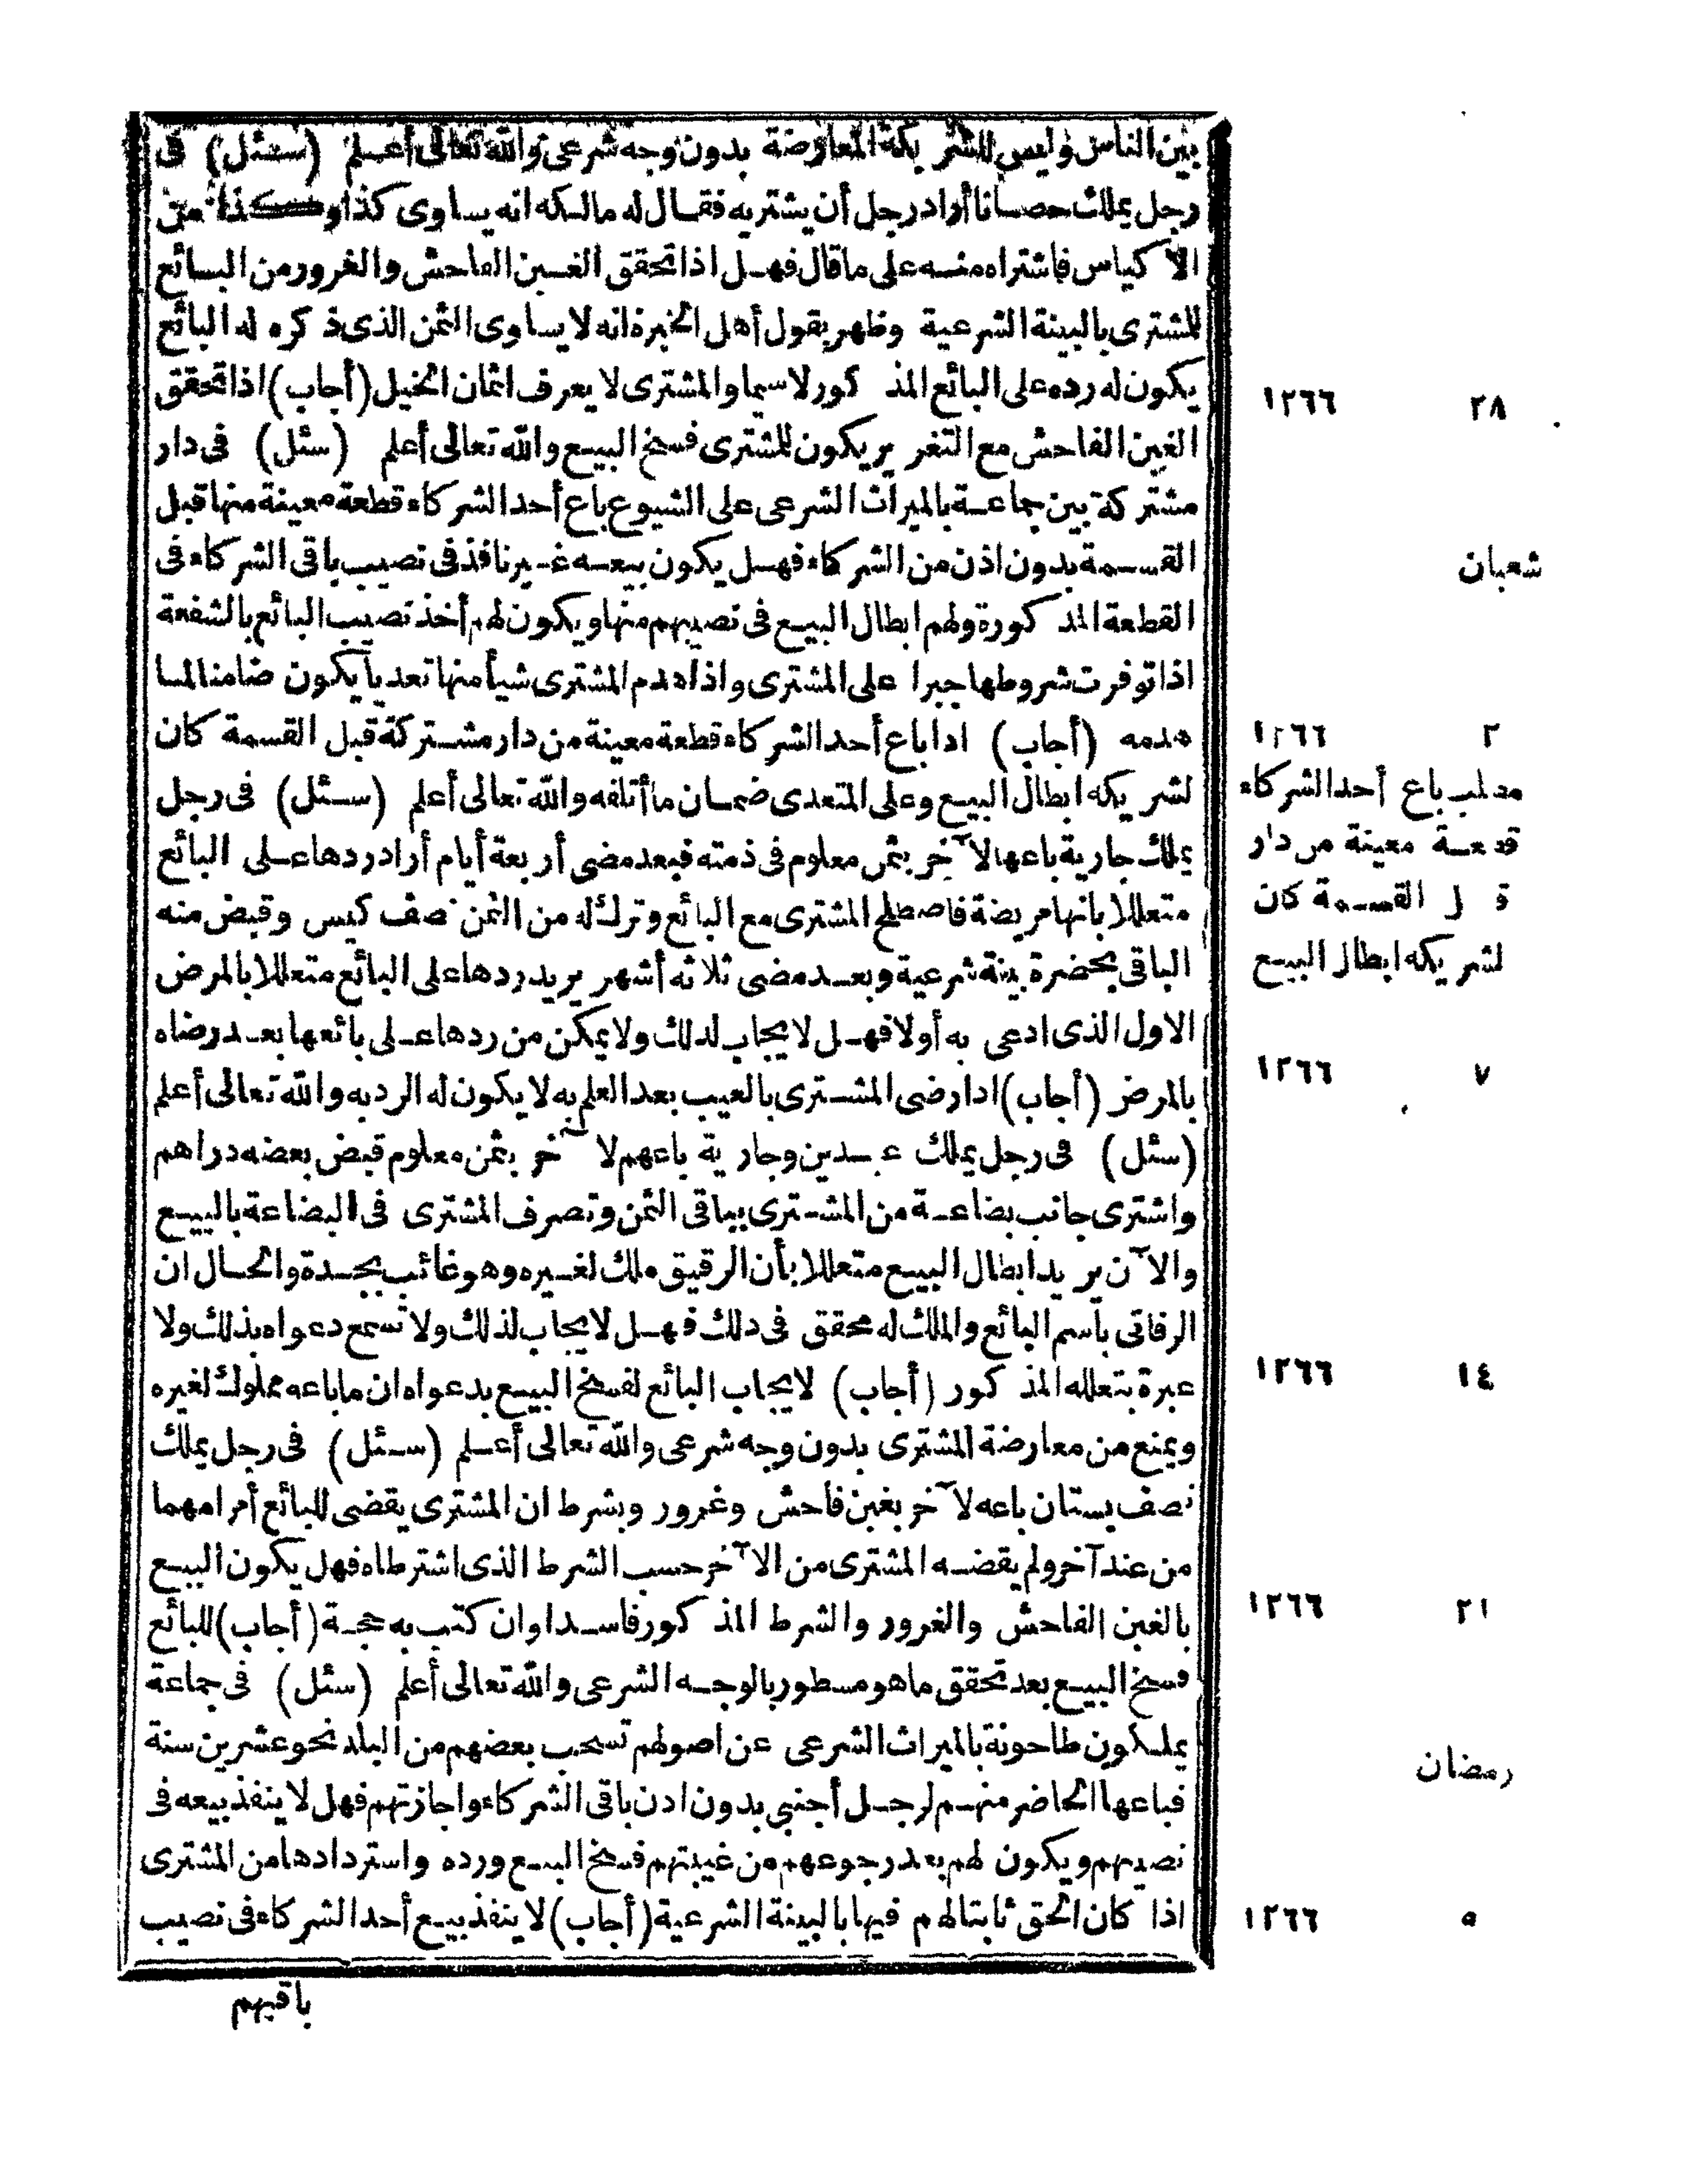 بين الناس وليس للشريكة المعارضة بدون وجه شرعى والله تعالى أعلم (سئل) فى
رجل يملك حصانا أراد رجل أن يشتريه فقال له مالكه انه يساوى كذا وكذا من
الأكياس فاشتراه منه على ما قال فهل اذا تحقق الغبن الفاحش والغرور من البائع
للمشترى بالبينة الشرعية وظهر بقول أهل الخبرة انه لا يساوى الثمن الذى ذكره له البائع
يكون له رده على البائع المذكور لا سيما والمشترى لا يعرف اثمان الخيل (أجاب) اذا تحقق
٢٨ ١٢٦٦
الغبن الفاحش مع التغرير يكون للمشترى فسخ البيع والله تعالى أعلم (سئل) فى دار
مشتركة بين جماعة بالميراث الشرعى على الشيوع باع أحد الشركاء قطعة معينة منها قبل
القسمة بدون اذن من الشركاء فهل يكون بيعه غير نافذ فى نصيب باقى الشركاء فى
شعبان
القطعة المذكورة ولهم ابطال البيع فى نصيبهم منها ويكون لهم أخذ نصيب البائع بالشفعة
اذا توفرت شروطها جبرا على المشترى واذا هدم المشترى شيأ منها تعديا يكون ضامنا لما
هدمه (أجاب) اذا باع أحد الشركاء قطعة معينة من دار مشتركة قبل القسمة كان
٢ ١٢٦٦
لشريكه ابطال البيع وعلى المتعدى ضمان ما أتلفه والله تعالى أعلم (سئل) فى رجل
مطلب باع أحد الشركاء
يملك جارية باعها لآخر بثمن معلوم فى ذمته فبعد مضى أربعة أيام أراد ردها على البائع
قطعة معينة من دار
متعللا بانها مريضة فاصطلح المشترى مع البائع وترك له من الثمن نصف كيس وقبض منه
قبل القسمة كان
الباقى بحضرة بينة شرعية وبعد مضى ثلاثه أشهر يريد ردها على البائع متعللا بالمرض
لشريكه ابطال البيع
الاول الذى ادعى به أولا فهل لا يجاب لذلك ولا يمكن من ردها على بائعها بعد رضاه
بالمرض (أجاب) اذا رضى المشترى بالعيب بعد العلم به لا يكون له الرد به والله تعالى أعلم
٧ ١٢٦٦
(سئل) فى رجل يملك عبدين وجارية باعهم لآخر بثمن معلوم قبض بعضه دراهم
واشترى جانب بضاعة من المشترى بباقى الثمن وتصرف المشترى فى البضاعة بالبيع
والآن يريد ابطال البيع متعللا بأن الرقيق ملك لغيره وهو غائب بجدة والحال ان
الرقاتى باسم البائع والملك له محقق فى ذلك فهل لا يجاب لذلك ولا تسمع دعواه بذلك ولا
عبرة بتعلله المذكور (أجاب) لا يجاب البائع لفسخ البيع بدعواه ان ما باعه مملوك لغيره
١٤ ١٢٦٦
ويمنع من معارضة المشترى بدون وجه شرعى والله تعالى أعلم (سئل) فى رجل يملك
نصف بستان باعه لآخر بغبن فاحش وغرور وبشرط ان المشترى يقضى للبائع أمرا مهما
من عند آخر ولم يقضه المشترى من الآخر حسب الشرط الذى اشترطاه فهل يكون البيع
بالغبن الفاحش والغرور والشرط المذكور فاسدا وان كتب به حجة (أجاب) للبائع
٢١ ١٢٦٦
فسخ البيع بعد تحقق ما هو مسطور بالوجه الشرعى والله تعالى أعلم (سئل) فى جماعة
يملكون طاحونة بالميراث الشرعى عن اصولهم تسحب بعضهم من البلد نحو عشرين سنة
رمضان
فباعها الحاضر منهم لرجل أجنبى بدون اذن باقى الشركاء واجازتهم فهل لا ينفذ بيعه فى
نصيبهم ويكون لهم بعد رجوعهم من غيبتهم فسخ البيع ورده واستردادها من المشترى
اذا كان الحق ثابتا لهم فيها بالبينة الشرعية (أجاب) لا ينفذ بيع أحد الشركاء فى نصيب
٥ ١٢٦٦
باقيهم